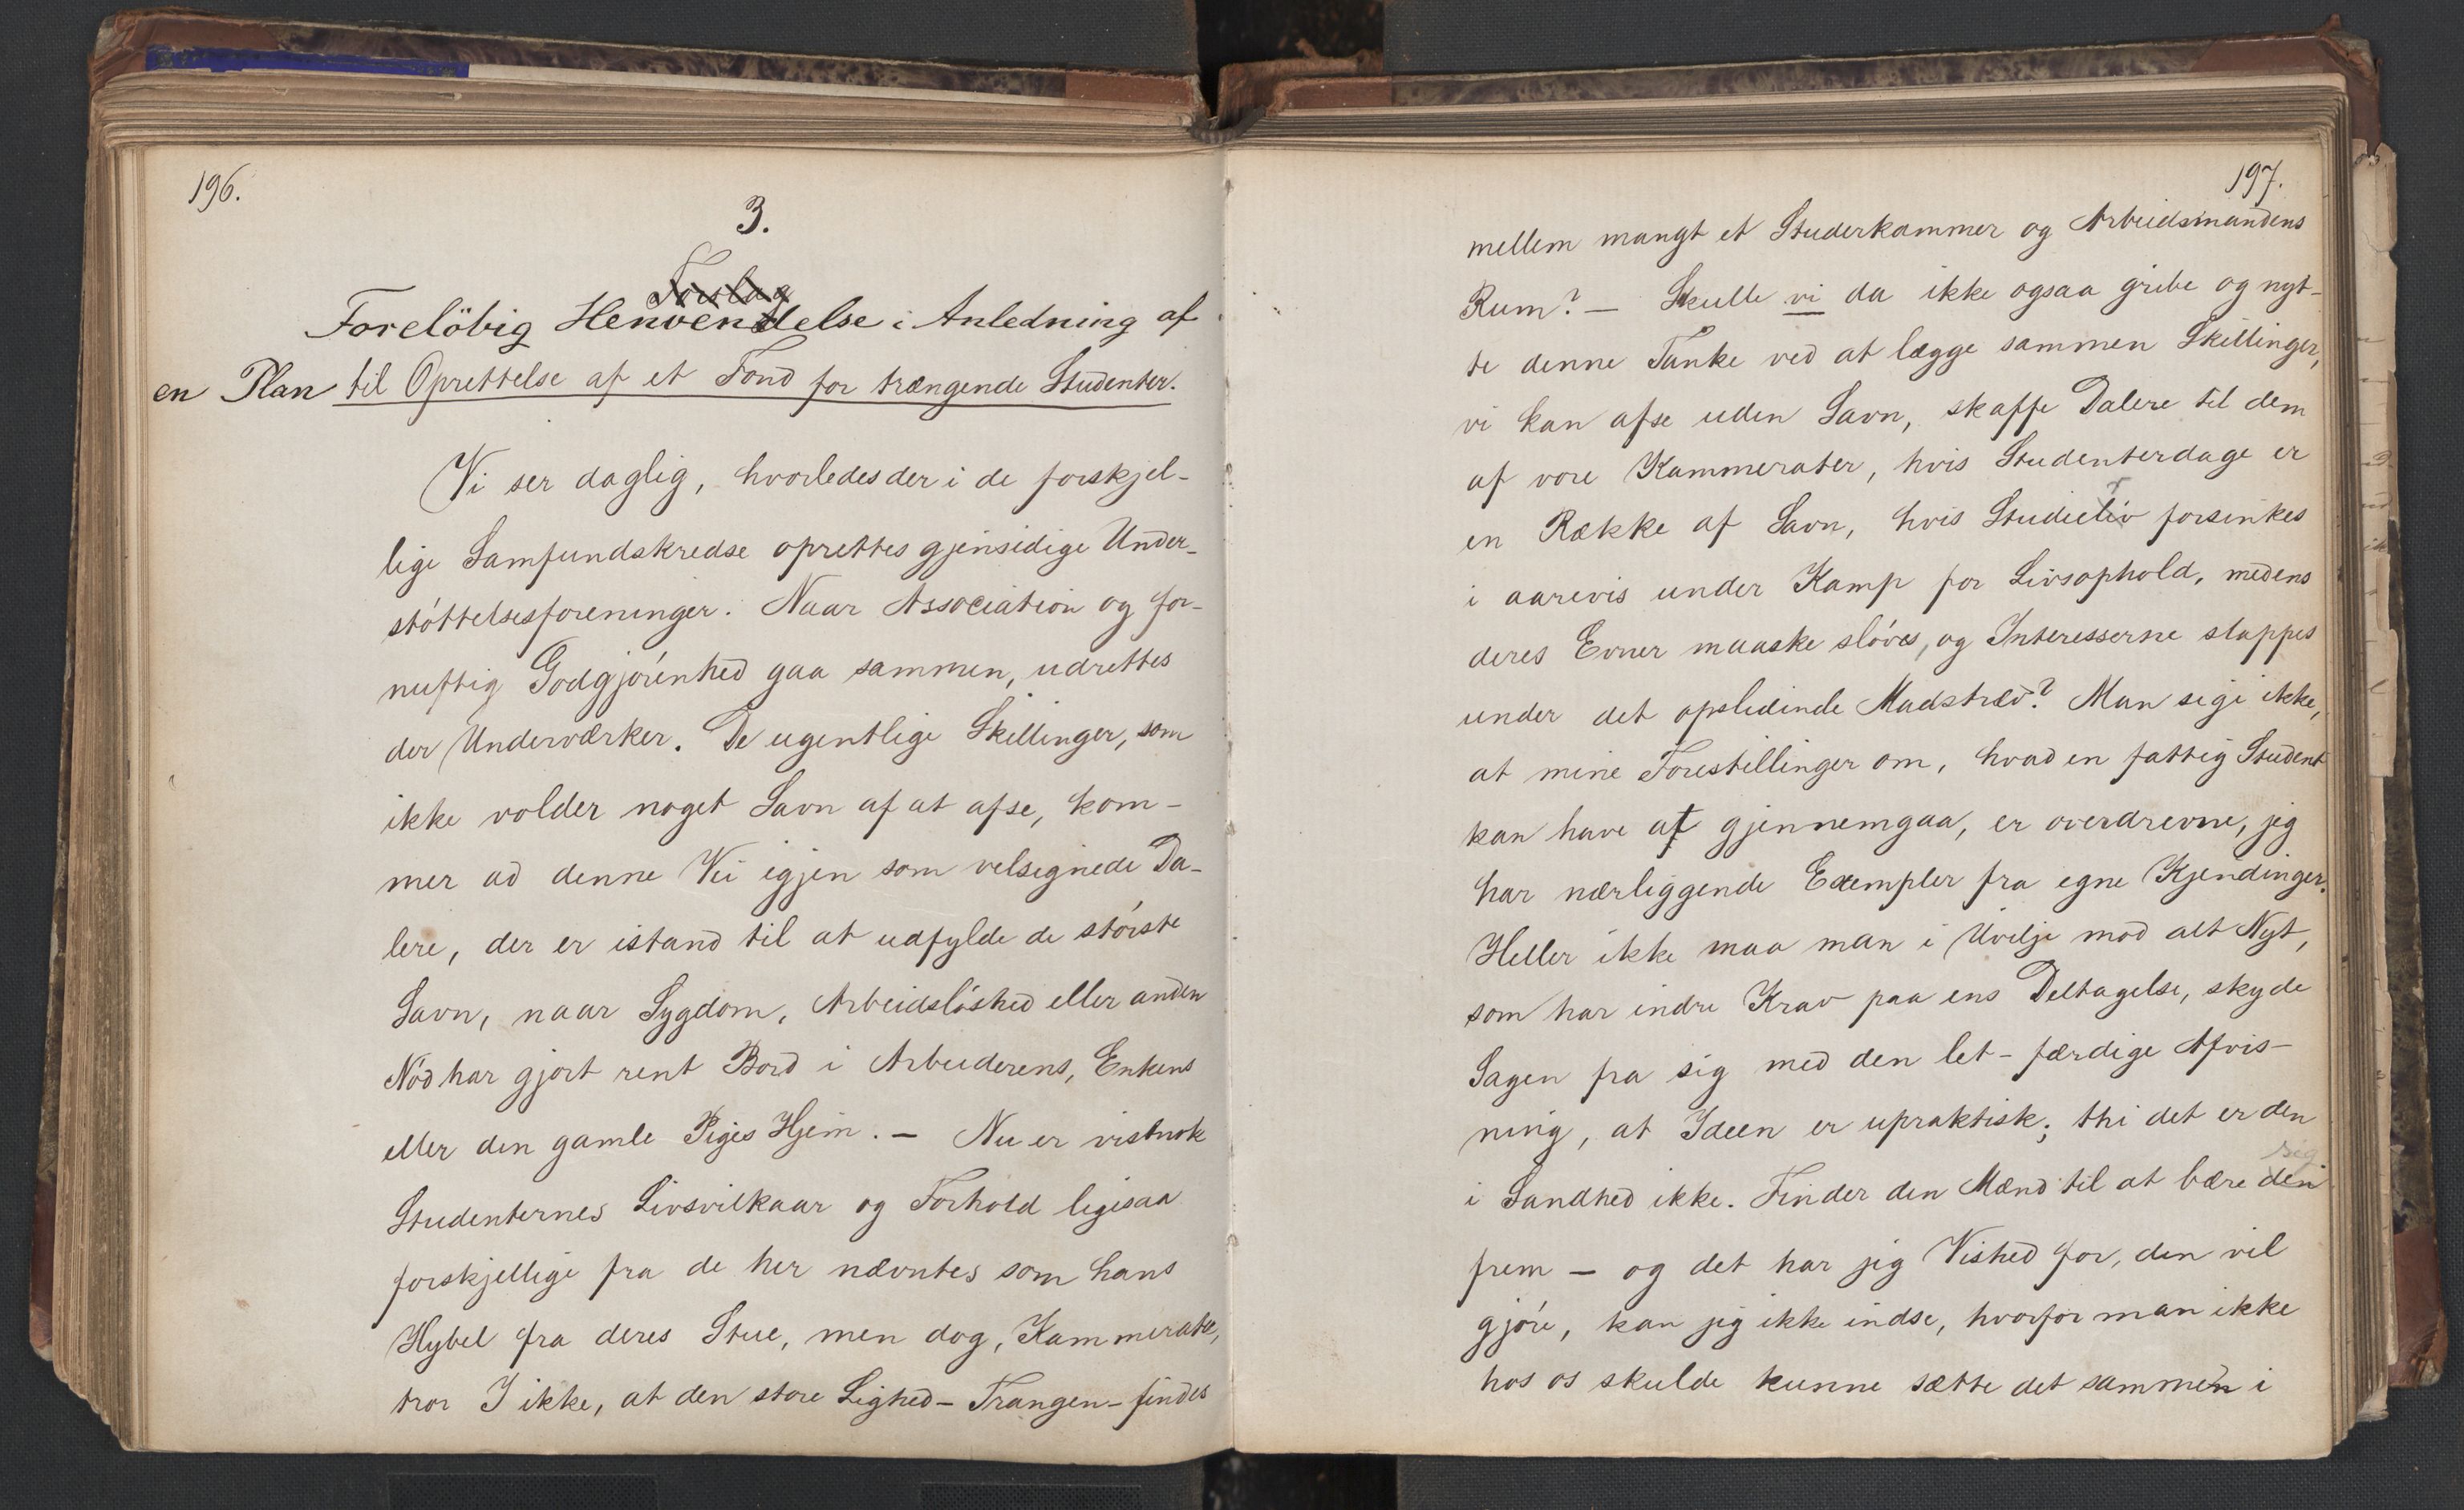 196.
3.
Forslag
Forelöbig Henvendelse i Anledning af
en Plan til Oprettelse af et Fond for trængende Studenter.
Vi ser daglig, hvorledes der i de forskjel-
lige Samfundskredse oprettes gjensidige Under-
stöttelsesforeninger. Naar Association og for-
nuftig Godgjörenhed gaa sammen, udrettes
der Underværker. De ugentlige Skillinger, som
ikke volder noget Savn af at afse, kom-
mer ad denne Vei igjen som velsignede Da-
lere, der er istand til at udfylde de störste
Savn, naar Sygdom, Arbeidslöshed eller anden
Nöd har gjort rent Bord i Arbeiderens, Enkens
eller den gamle Piges Hjem. — Nu er vistnok
Studenternes Livsvilkaar og Forhold ligesaa
forskjellige fra de her nævntes som hans
Hybel fra deres Stue, men dog, Kammerater,
tror I ikke, at den store Lighed - Trangen - findes
197.
mellem mangt et Studerkammer og Arbeidsmandens
Rum? — Skulle vi da ikke ogsaa gribe og nyt-
te denne Tanke ved at lægge sammen Skillinger,
vi kan afse uden Savn, skaffe Dalere til dem
af vore Kammerater, hvis Studenterdage er
en Række af Savn, hvis Studieliv forsinkes
i aarevis under Kamp for Livsophold, medens
deres Evner maaske slöves, og Interesserne slappes
under det opslidende Madstræv? Man sige ikke,
at mine Forestillinger om, hvad en fattig Student
kan have at gjennemgaa, er overdrevne, jeg
har nærliggende Exempler fra egne Kjendinger.
Heller ikke maa man i Uvilje mod alt Nyt,
som har indre Krav paa ens Deltagelse, skyde
Sagen fra sig med den let-færdige Afvis-
ning, at Ideen er upraktisk; thi det er den
sig
i Sandhed ikke. Finder den Mænd til at bære den
frem — og det har jeg Vished for, den vil
gjöre, kan jeg ikke indse, hvorfor man ikke
hos os skulde kunne sætte det sammen i